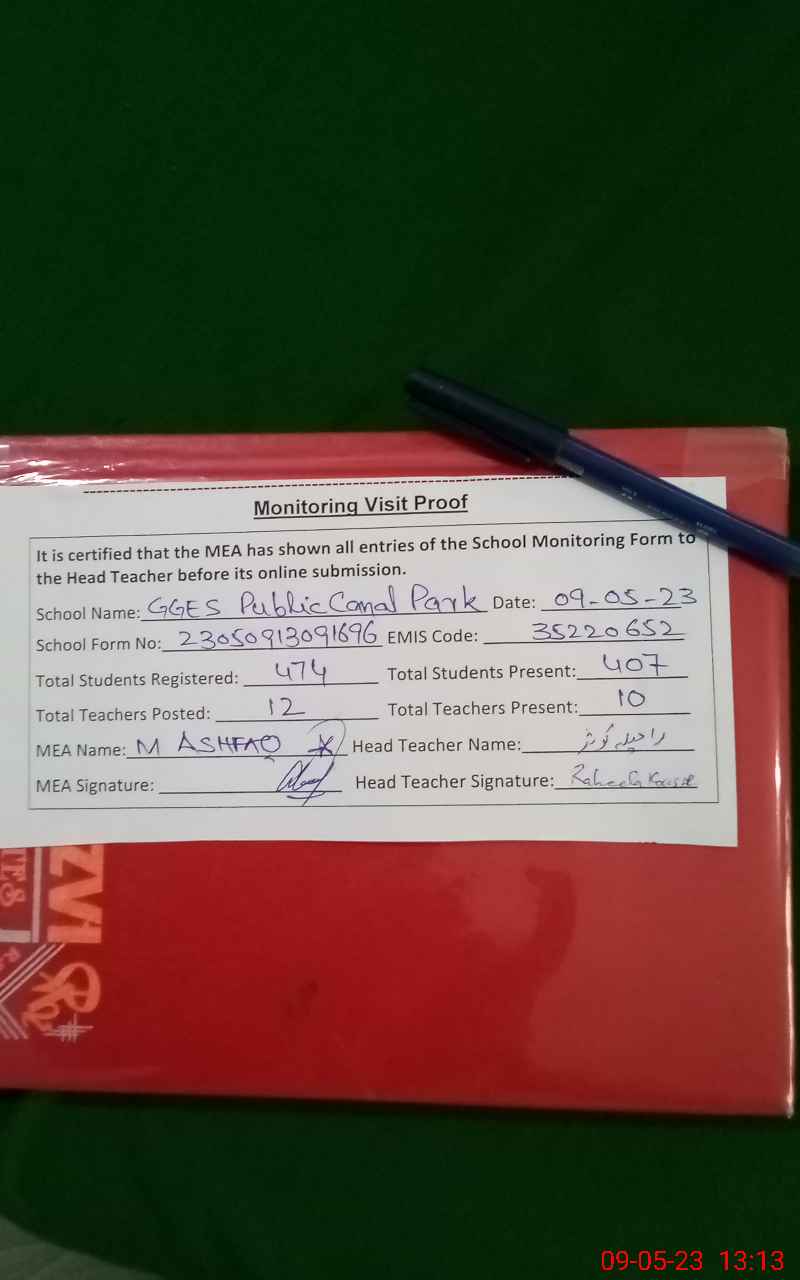 Monitoring Visit Proof
It is certified that the MEA has shown all entries of the School Monitoring Form to
the Head Teacher before its online submission.
School Name: GGES Public Canal Park Date: 09-05-23
School Form No: 23050913091696 EMIS Code: 35220652
Total Students Registered: 474 Total Students Present: 407
Total Teachers Posted: 12 Total Teachers Present: 10
MEA Name: M ASHFAQ Head Teacher Name: راحیلہ کوثر
MEA Signature: Head Teacher Signature: Raheela Kausar
ZVI
TES
09-05-23 13:13